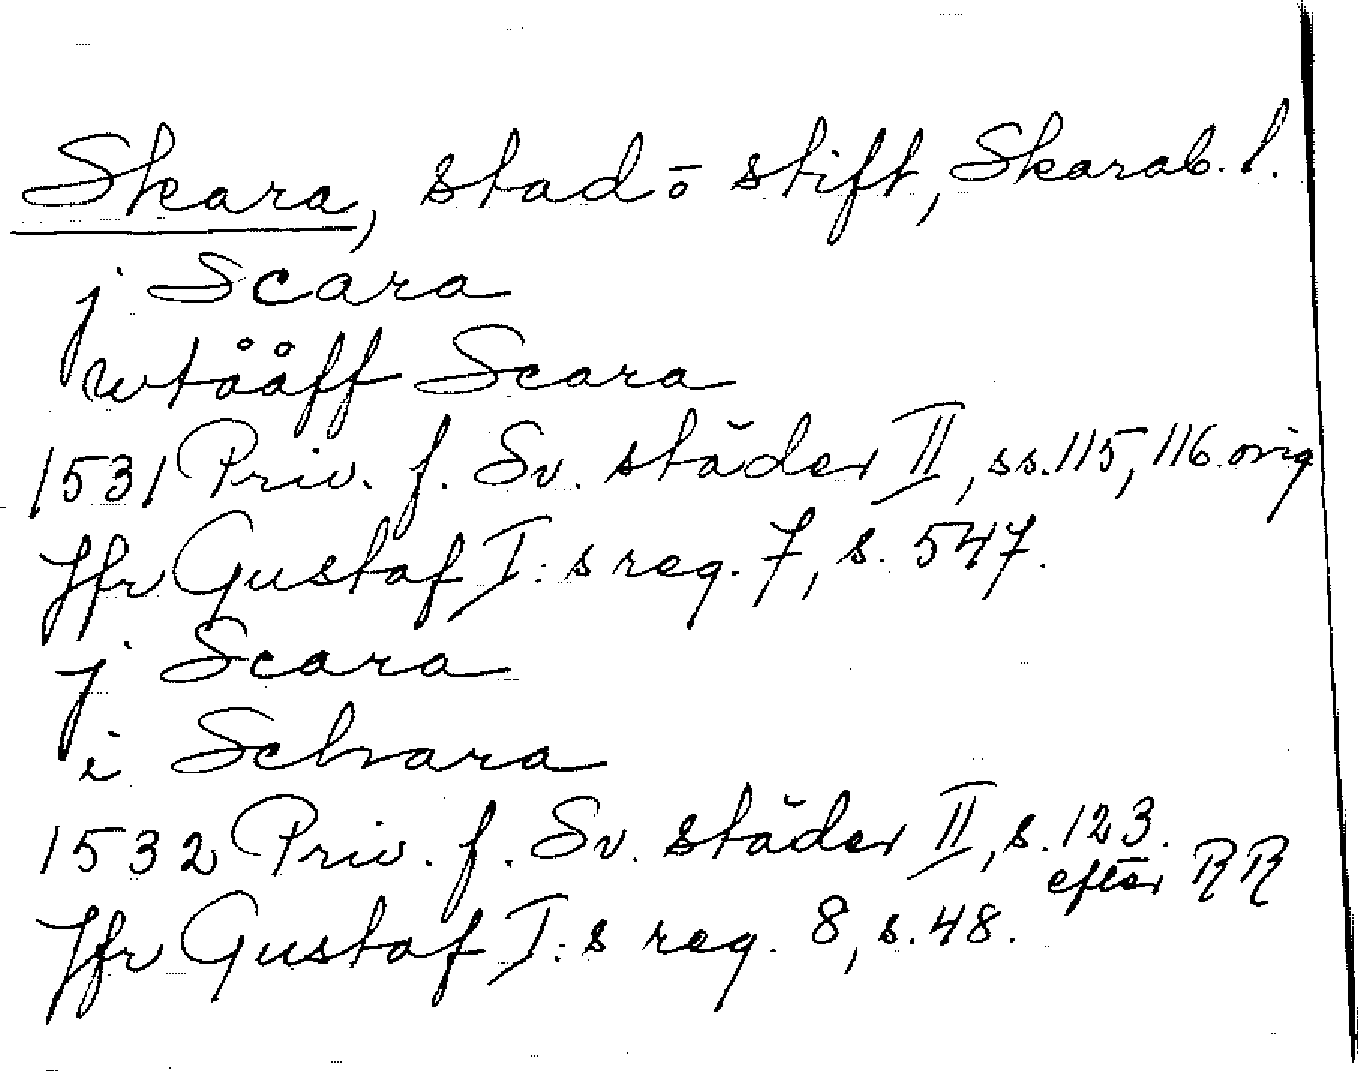 Skara, stad o stift, Skarab. l.
j Scara
wtååff Scara
1531 Priv. f. Sv. städer II, ss. 115, 116 orig
Jfr Gustaf I:s reg. 7, s. 547.
j Scara
i Schara
1532 Priv. f. Sv. städer II, s. 123.
efter RR
Jfr Gustaf I:s reg. 8, s. 48.